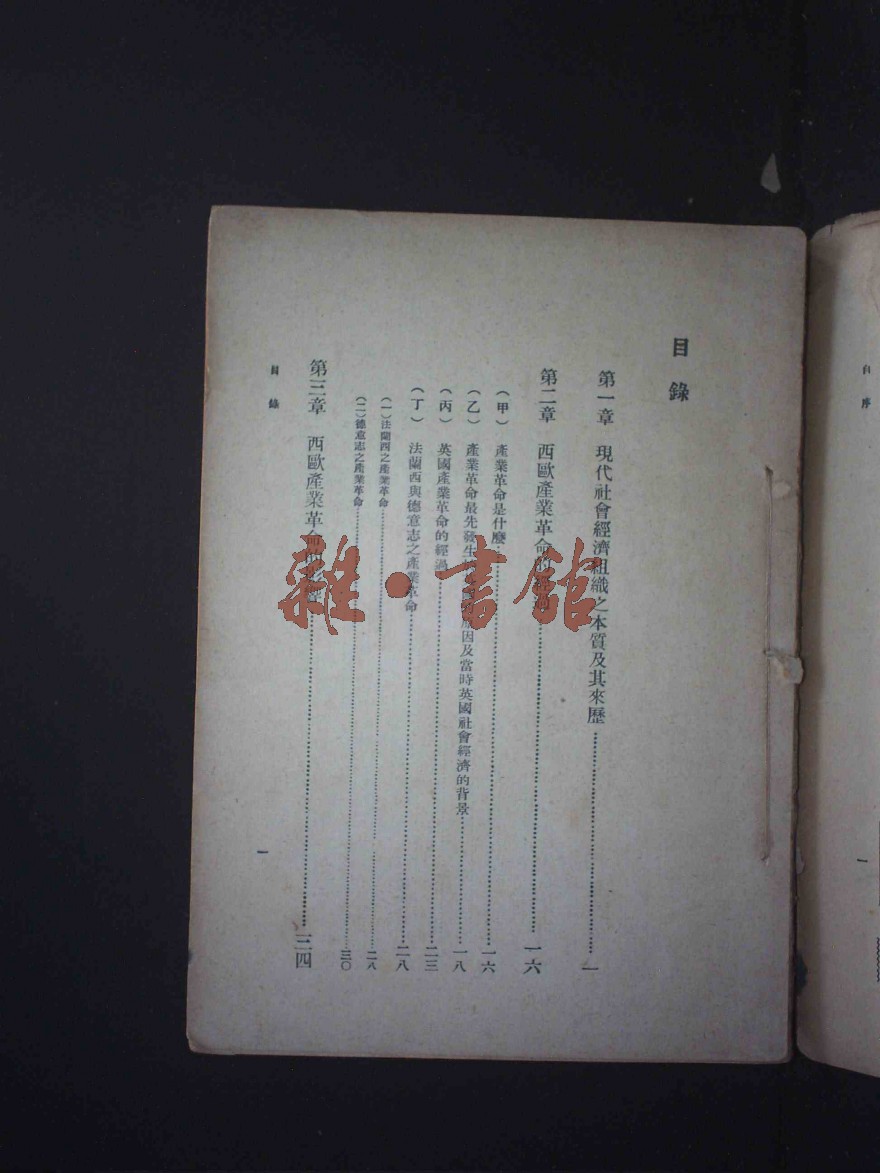 目錄
第一章 現代社會經濟組織之本質及其來歷…………一
第二章 西歐產業革命的經過…………一六
（甲）產業革命是什麼…………一六
（乙）產業革命最先發生 原因及當時英國社會經濟的背景…………一八
（丙）英國產業革命的經過…………二三
（丁）法蘭西與德意志之產業革命…………二八
（一）法蘭西之產業革命…………二八
（二）德意志之產業革命…………三〇
第三章 西歐產業革命的影響…………三四
目錄
一
自序
一
雜·書館